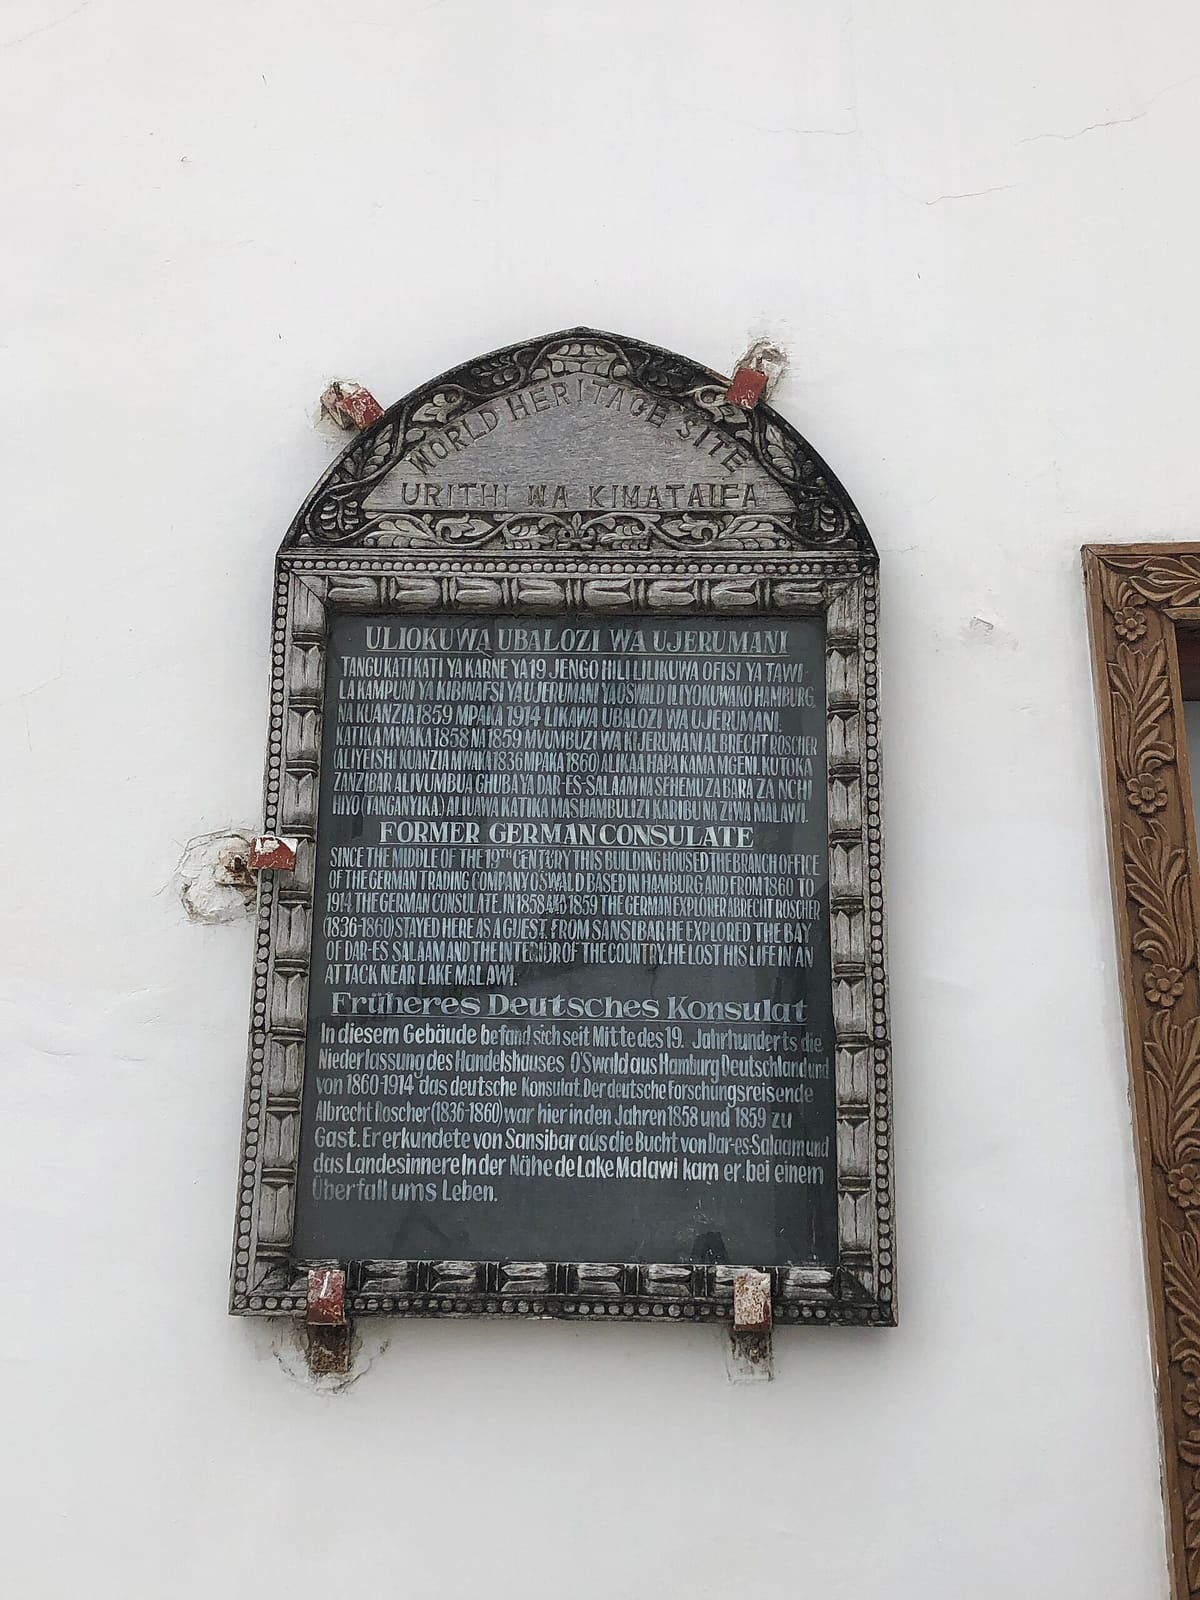 WORLD HERITAGE SITE
URITHI WA KIMATAIFA
ULIOKUWA UBALOZI WA UJERUMANI
TANGU KATI KATI YA KARNE YA 19 JENGO HILI LILIKUWA OFISI YA TAWI-
LA KAMPUNI YA KIBINAFSI YA UJERUMANI YA OSWALD ILIYOKUWAKO HAMBURG,
NA KUANZIA 1859 MPAKA 1914 LIKAWA UBALOZI WA UJERUMANI.
KATIKA MWAKA 1858 NA 1859 MVUMBUZI WA KIJERUMANI ALBRECHT ROSCHER
(ALIYEISHI KUANZIA MWAKA 1836 MPAKA 1860) ALIKAA HAPA KAMA MGENI. KUTOKA
ZANZIBAR ALIVUMBUA GHUBA YA DAR-ES-SALAAM NA SEHEMU ZA BARA ZA NCHI
HIYO (TANGANYIKA) ALIUAWA KATIKA MASHAMBULIZI KARIBU NA ZIWA MALAWI.
FORMER GERMAN CONSULATE
SINCE THE MIDDLE OF THE 19TH CENTURY THIS BUILDING HOUSED THE BRANCH OFFICE
OF THE GERMAN TRADING COMPANY O'SWALD BASED IN HAMBURG AND FROM 1860 TO
1914 THE GERMAN CONSULATE. IN 1858 AND 1859 THE GERMAN EXPLORER ABRECHT ROSCHER
(1836-1860) STAYED HERE AS A GUEST. FROM SANSIBAR HE EXPLORED THE BAY
OF DAR-ES SALAAM AND THE INTERIOR OF THE COUNTRY. HE LOST HIS LIFE IN AN
ATTACK NEAR LAKE MALAWI.
Früheres Deutsches Konsulat
In diesem Gebäude befand sich seit Mitte des 19. Jahrhunderts die
Niederlassung des Handelshauses O'Swald aus Hamburg Deutschland und
von 1860-1914 das deutsche Konsulat. Der deutsche Forschungsreisende
Albrecht Roscher (1836-1860) war hier in den Jahren 1858 und 1859 zu
Gast. Er erkundete von Sansibar aus die Bucht von Dar-es-Salaam und
das Landesinnere In der Nähe de Lake Malawi kam er bei einem
Überfall ums Leben.